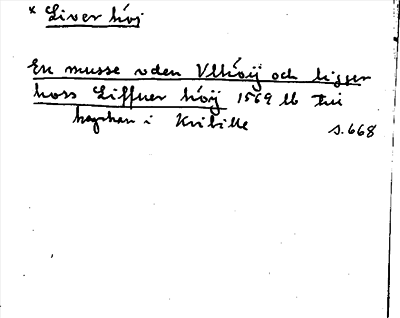 * Liver höj
En musse vden Vlhöij och ligger
hoss Liffuer höij 1569 lb
i Kribille s. 668